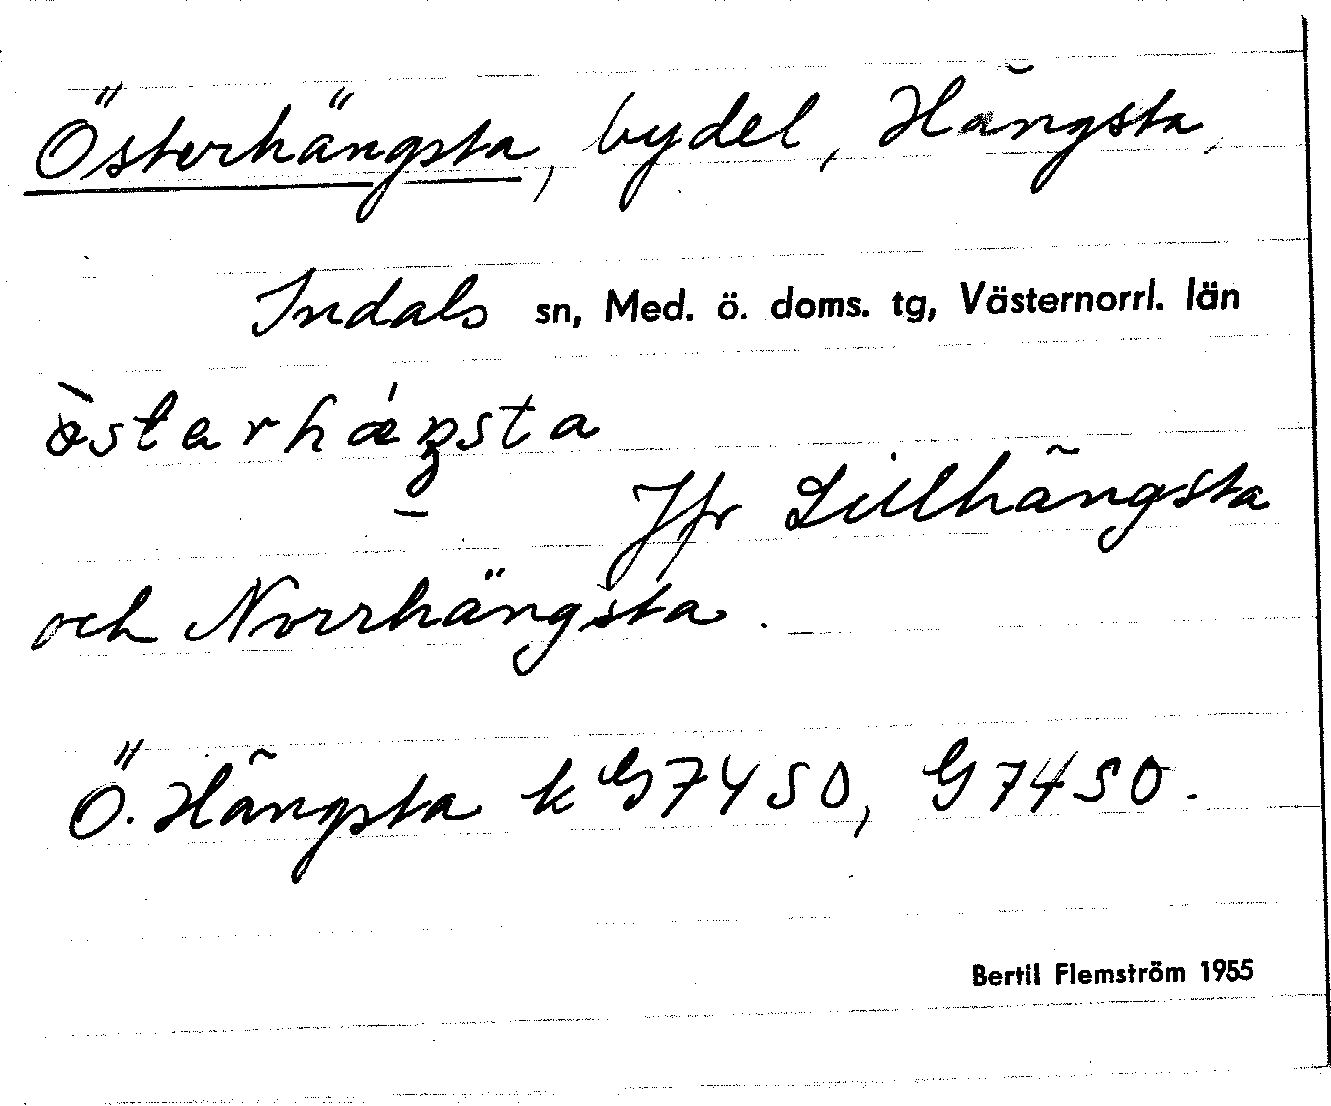 Österhängsta, bydel, Hängsta,
Indals sn, Med. ö. doms. tg, Västernorrl. län
òstarhǽŋsta
Jfr Lillhängsta
och Norrhängsta.
Ö. Hängsta k G7450, G7450.
Bertil Flemström 1955